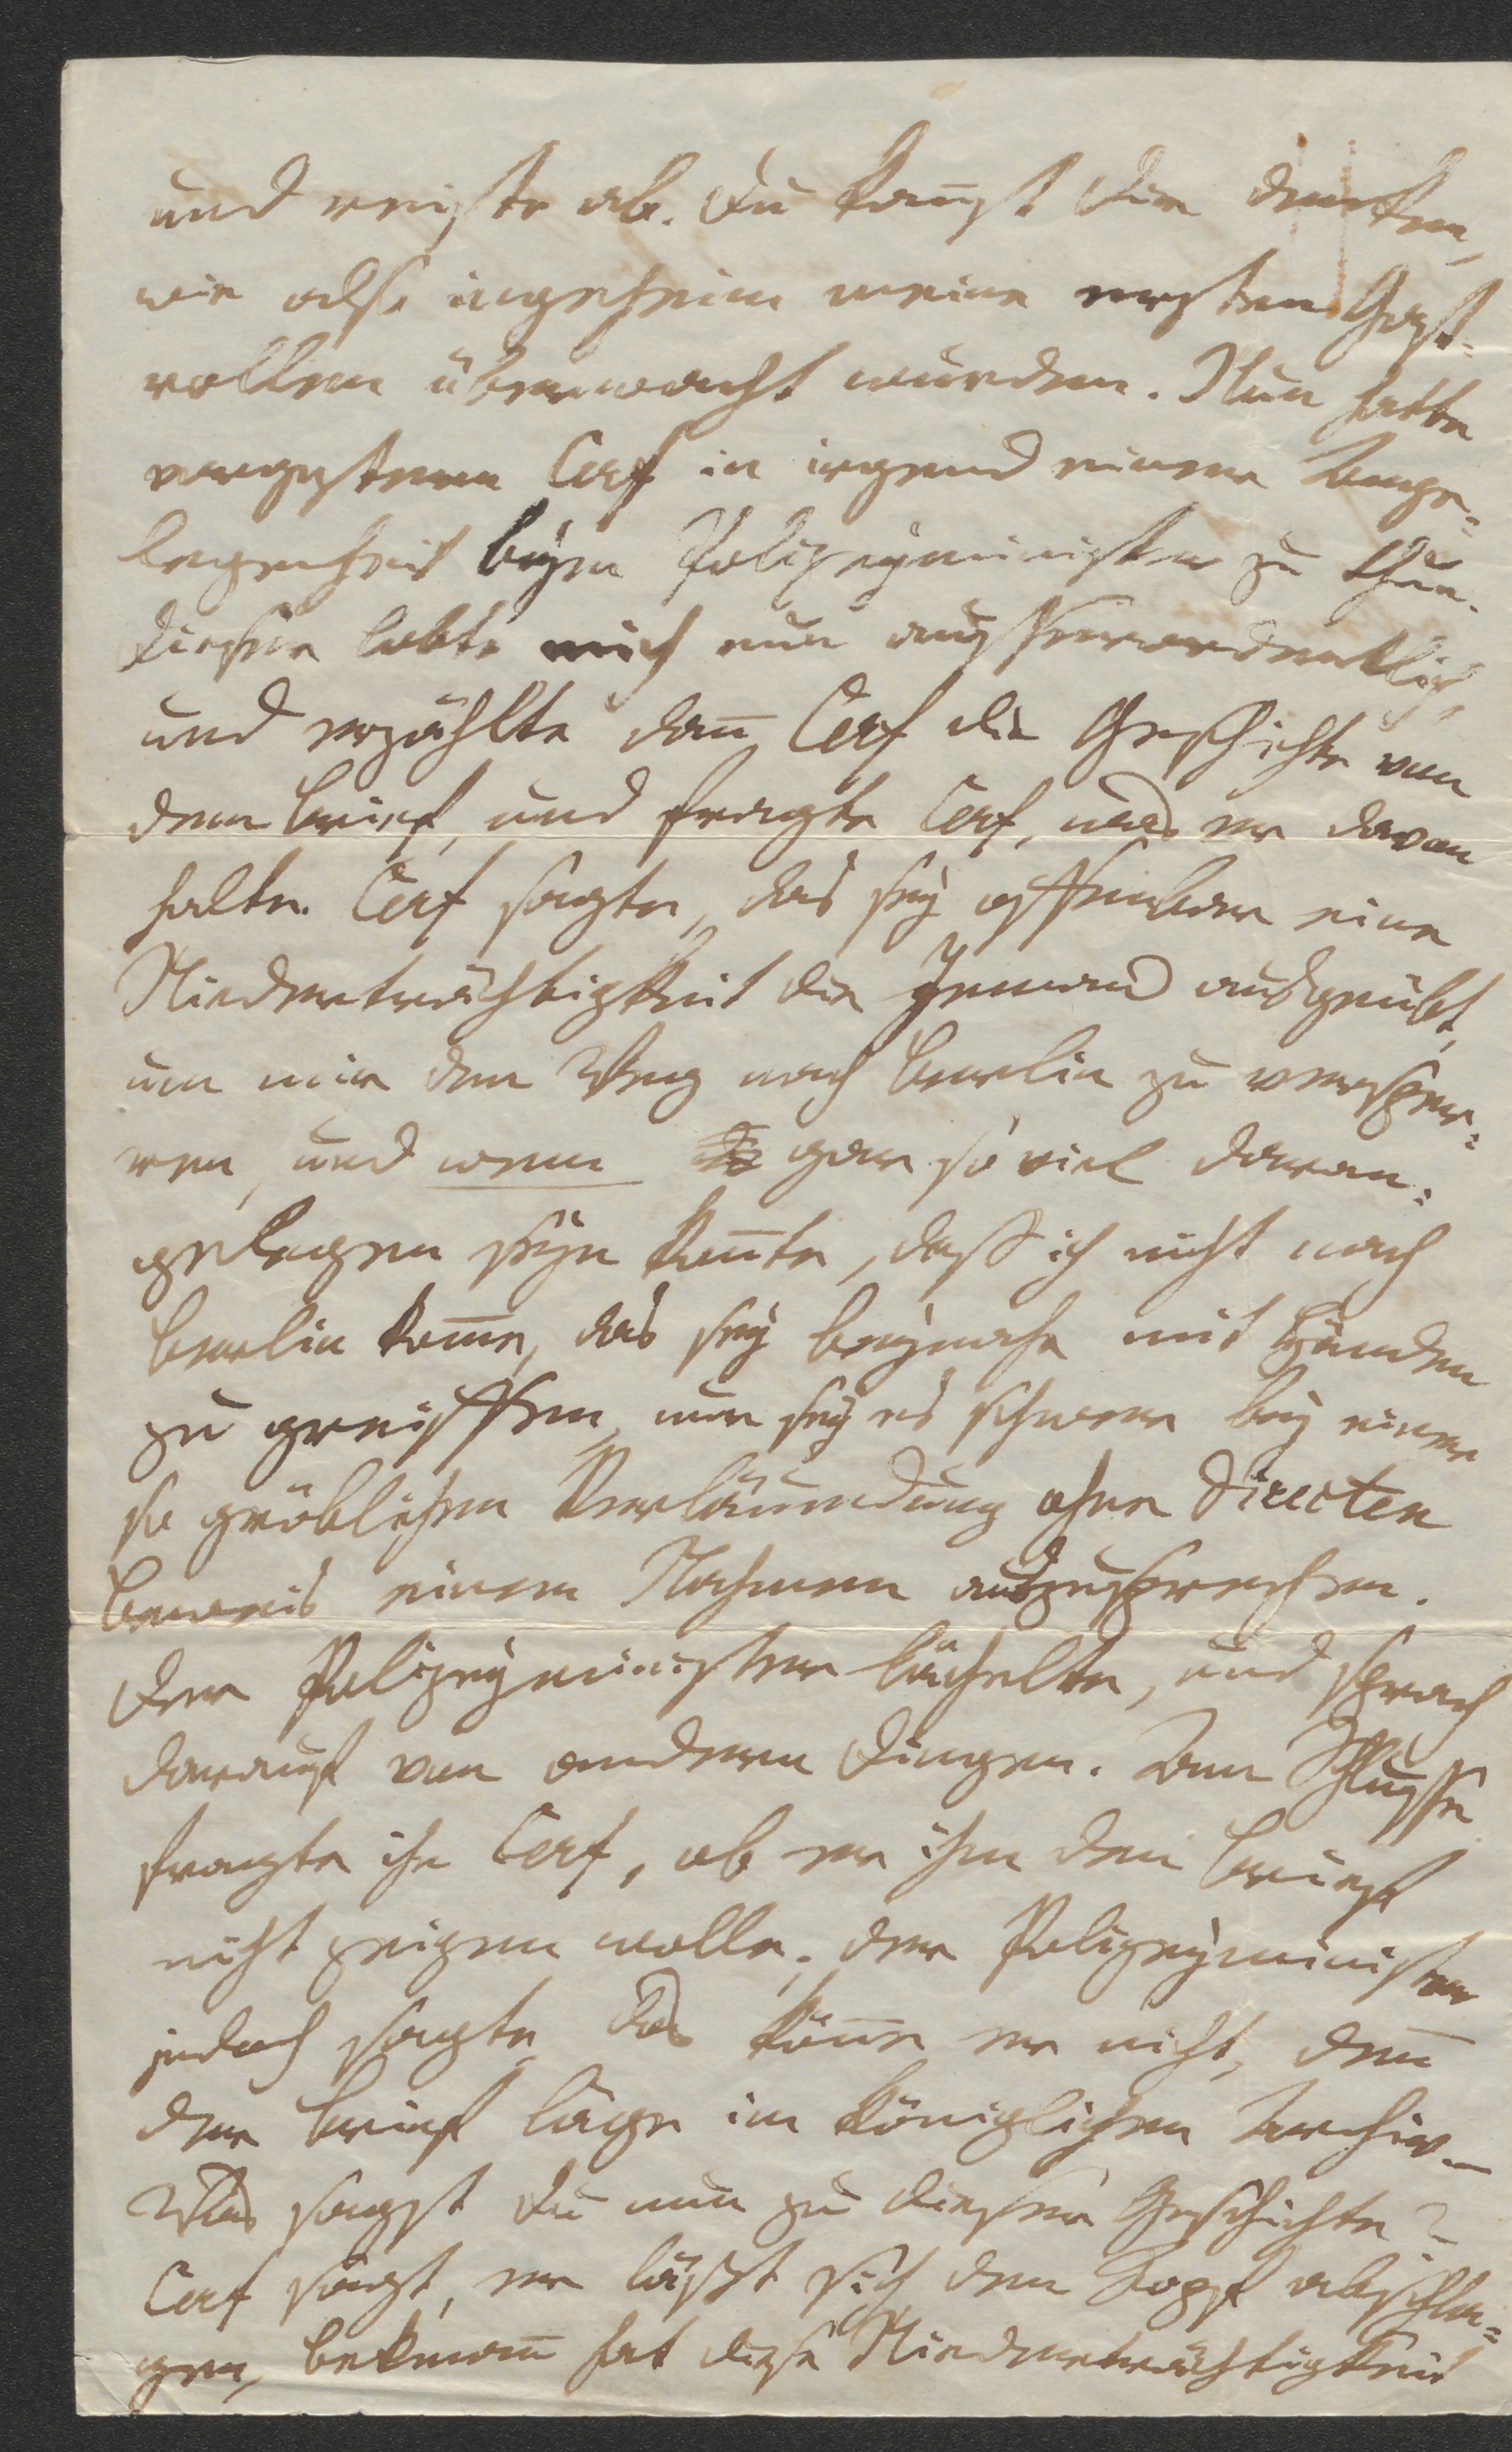 und reiste ab. Du kan̄st dir denken,
wie also ingeheim meine ersten Gast-
rollen überwacht wurden. Nun hatte
vorgestern Cerf in irgend einer Ange-
legenheit beym Polizeyminister zu thun.
Dieser lobte mich nun ausserordentlich,
und erzählte dan̄ Cerf die Geschichte von
dem Brief, und fragte Cerf, was er davon
halte. Cerf sagte, das sey offenbar eine
Niederträchtigkeit die Jemand ausgeübt,
um mir den Weg nach Berlin zu versper-
ren, und wem gar so viel daran-
gelegen seyn kon̄te, dass ich nicht nach
Berlin kom̄e, das sey beynahe mit Händen
zu greiffen, nur sey es schwer bey einer
so gröblichen Verläumdung ohne directen
Beweis einen Nahmen auszusprechen.
Der Polizeyminister lächelte, und sprach
darauf von andern Dingen. Am Schlusse
fragte ihn Cerf, ob er ihm den Brief
nicht zeigen wolle; der Polizeyminister
jedoch sagte das kön̄e er nicht, den̄
der Brief läge im königlichen Archiv.–
Was sagst du nun zu dieser Geschichte?
Cerf sagt, er lässt sich den Kopf abschla-
gen, Bekman̄ hat diese Niederträchtigkeit